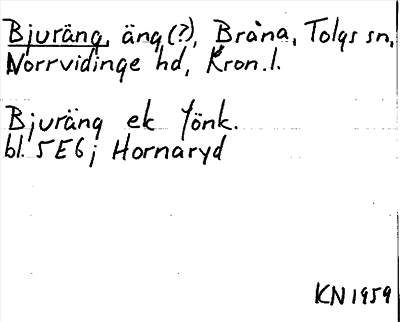 Bjuräng, äng(?), Bråna, Tolgs sn,
Norrvidinge hd, Kron. l.
Bjuräng ek Jönk.
bl. 5E6j Hornaryd
KN1959